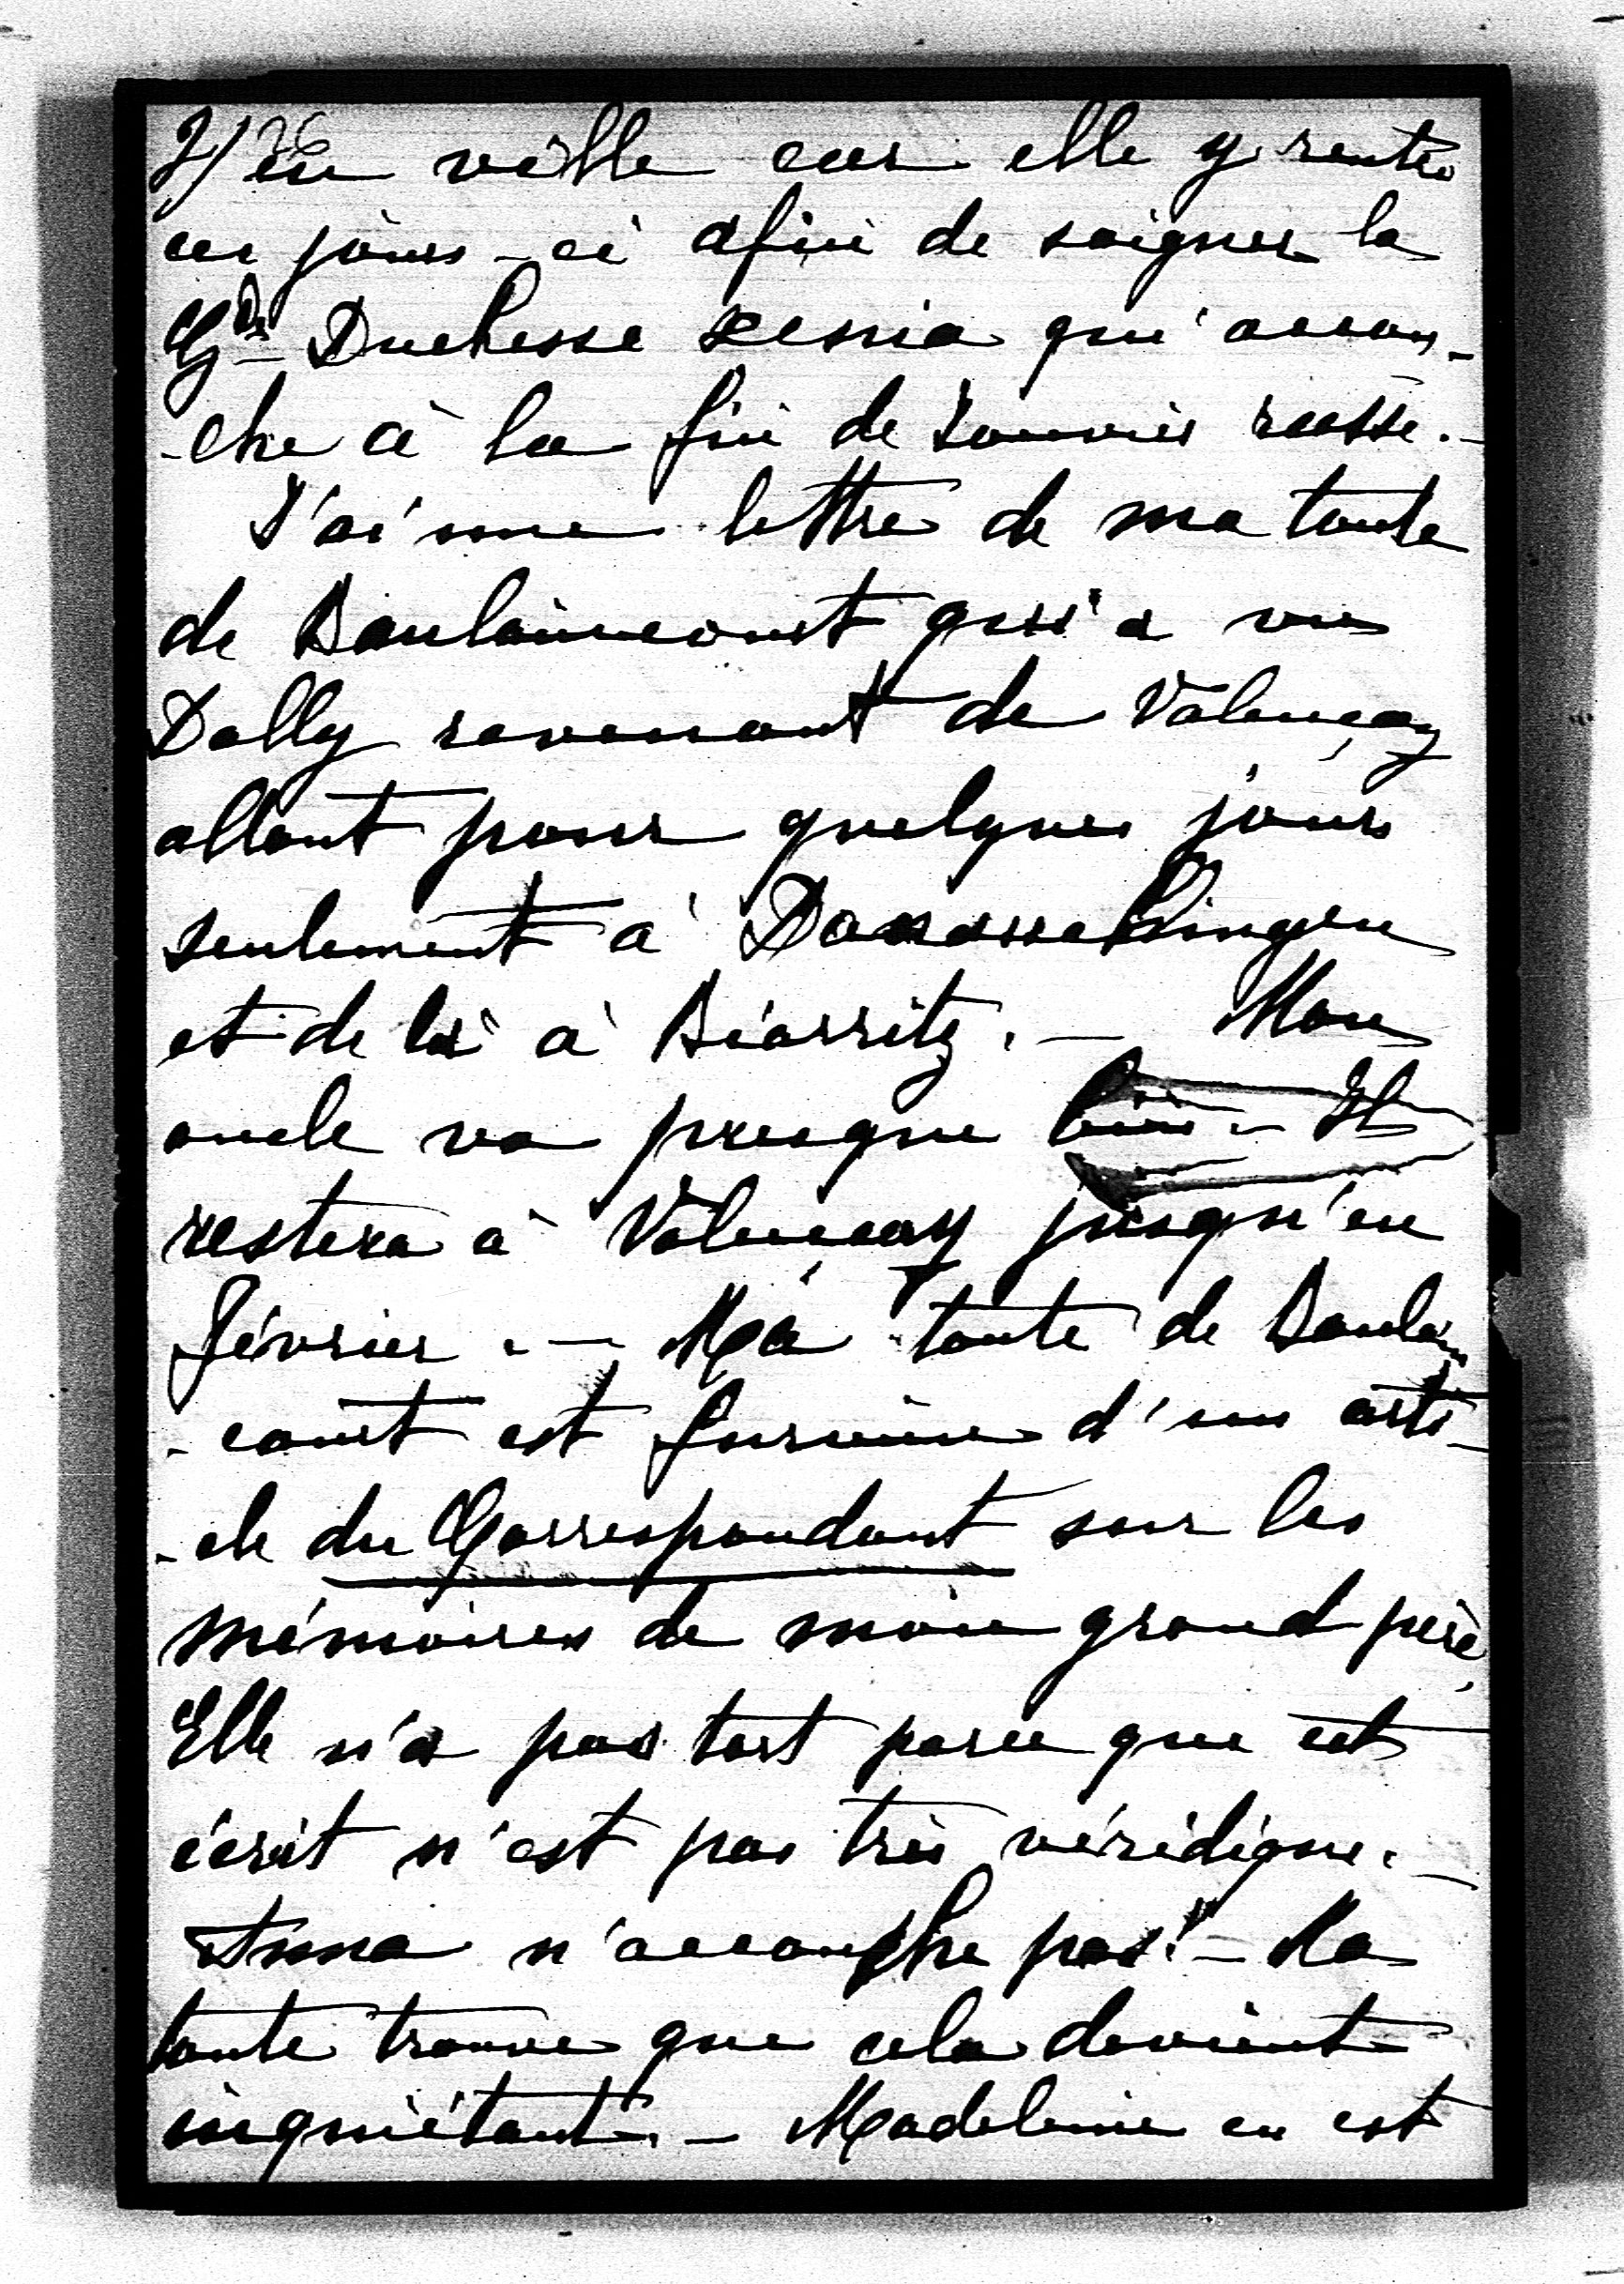 2/ en ville car elle y rentre
ces jours-ci afin de soigner la
Gde Duchesse Xenia qui accou-
-che à la fin de Janvier russe.-
J'ai une lettre de ma tante
de Boulaincourt qui a vu
Dolly revenant de Valençay
allant pour quelques jours
seulement à Donaueschingen
et de là à Biarritz. - Mon
oncle va presque bien - Il
restera à Valençay jusqu'en
Février. - Ma tante de Boulain
-court est furieuse d'un arti-
-cle du Correspondant sur les
mémoires de mon grand père,
Elle n'a pas tort parce que cet
écrit n'est pas très véridique. -
Anna n'accouche pas! - Ma
tante trouve que cela devient
inquiétant. - Madeleine en est